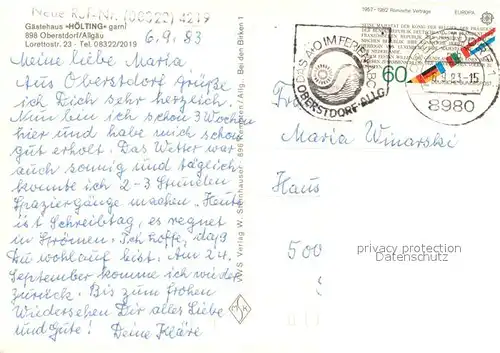 Neue Ruf-Nr. (08322) 4219
Gästehaus »HÖLTING« garni
898 Oberstdorf/Allgäu
Lorettostr. 23 - Tel. 08322/2019
6.9.83
Meine liebe Maria
Aus Oberstdorf grüße
ich Dich sehr herzlich.
Nun bin ich schon 3 Wochen
hier und habe mich schon
gut erholt. Das Wetter war
auch sonnig und täglich
konnte ich 2-3 Stunden
Spaziergänge machen. Heute
ist Schreibtag, es regnet
in Strömen. Ich hoffe, daß
Du wohlauf bist. Am 24.
September komme ich wieder
zurück. Bis zum frohen
Wiedersehen Dir alles Liebe
und Gute! Deine Kläre
VWS Verlag W. Steinhauser · 896 Kempten/Allg. Bei den Birken 1
MSK
DAS IM FERIEN-ABC
OBERSTDORF-ALLG.
1957-1982 Römische Verträge EUROPA
60
.9.83-15
8980
Maria Winarski
Haus
500
privacy protection
watermark